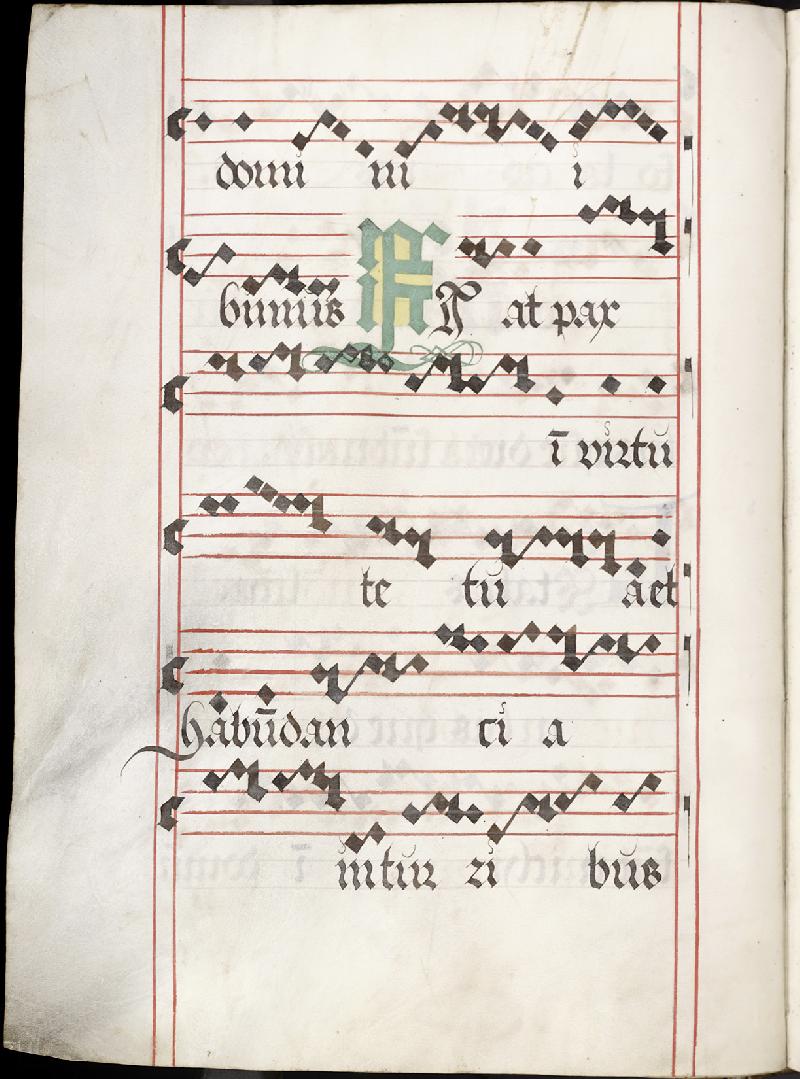 domi ni i
bimus F V̄ at pax
ī virtu
te tu a et
habūdan ci a
in tur ri bus